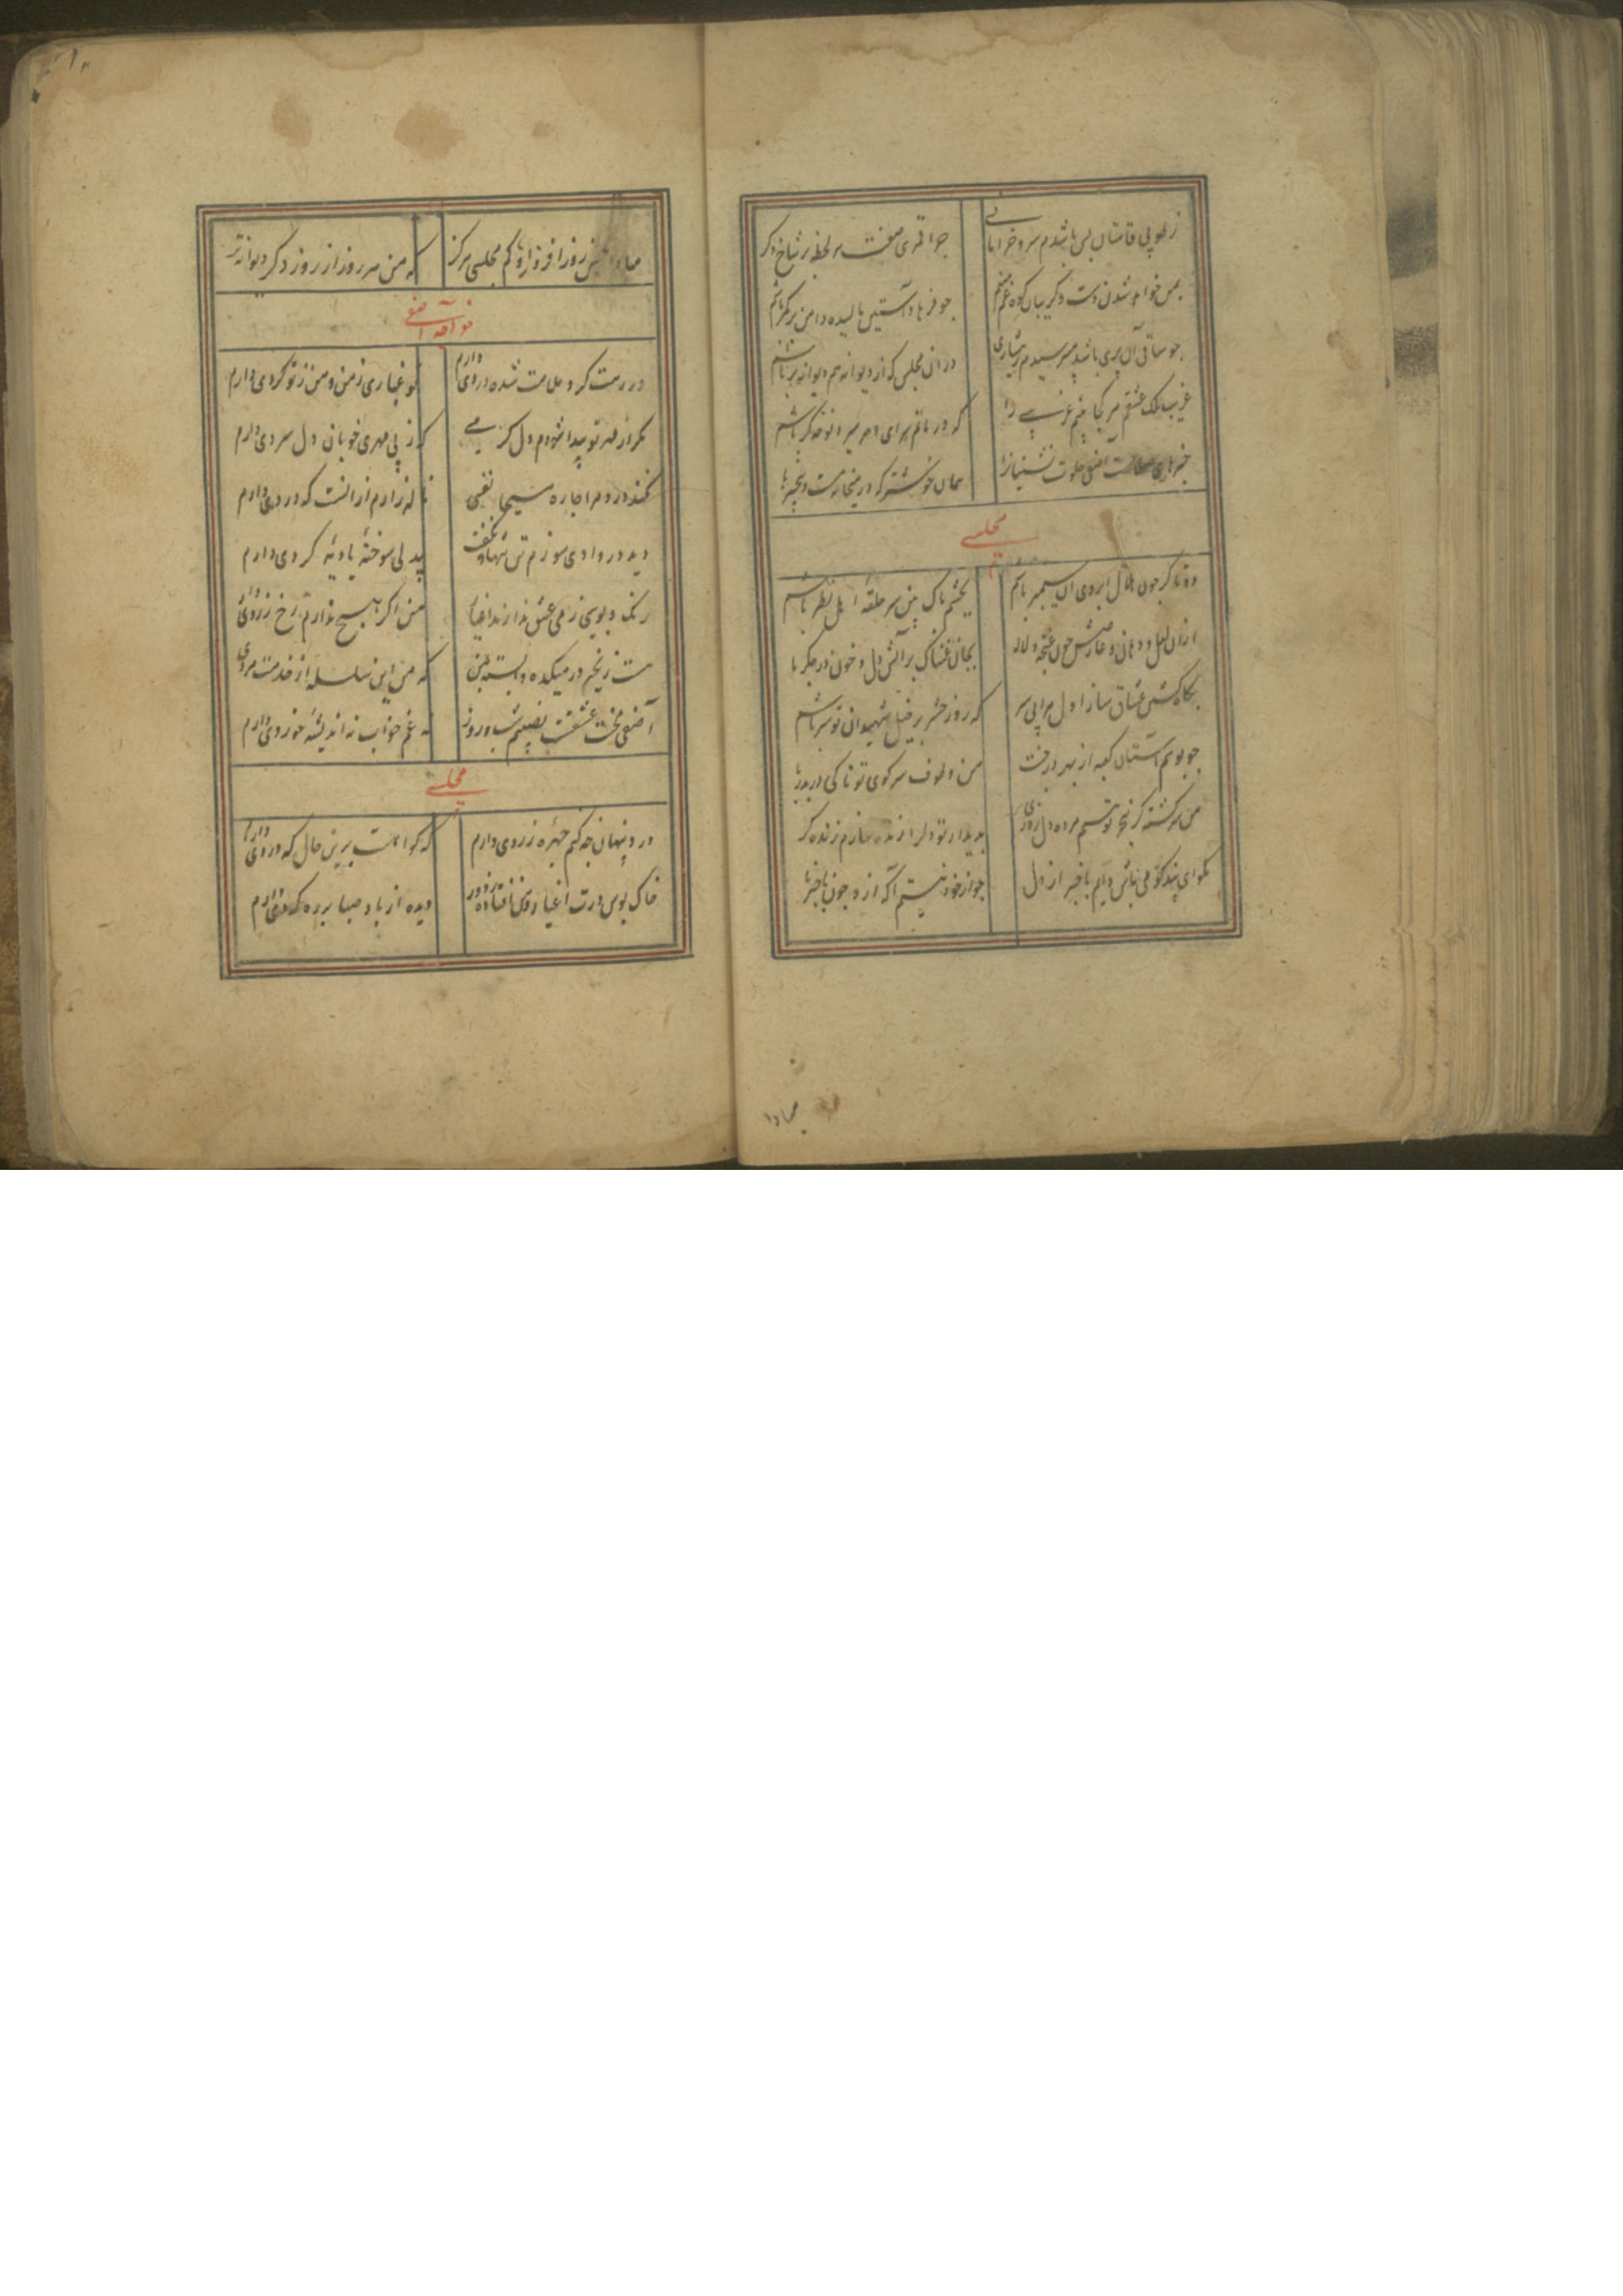 ز طوبی قامتان بس باشدم سرو خرامانی
چرا قمری صفت هر لحظه بر شاخ دگر
بمن خواهد شدن دست و گریبان کوه غم
چو فرهاد آستین مالیده دامن بر کمر باشم
چو ساقی آن پری باشد مپرسیدم ز هشیاری
در ان مجلس که از دیوانه هم دیوانه تر باشم
غریب ملک عشقم هر کجا غریبی را
که در ماتم سرای دهر نوحه گر باشم
آصفی خلوت نشینان را
همان خوشتر که در میخانه مست و بیخبر باشم
مجلسی
دو تا گر چون هلال ابروی ان سیمبر باشم
بچشم پاک بین سر حلقه اهل نظر باشم
ازان لعل و دهان و عارضش چون غنچه و لاله
بجان غمناک بر آتش دل و خون در جگر باشم
بگاه کشتن عشاق ساز اول مرا بی سر
که روز حشر بر خیل شهیدان تو سر باشم
چو بوسم آستان کعبه از بهر درت
من و طوف سر کوی تو تا کی در بدر باشم
من سرگشته کز هجر تو هستم مرده دل روزی
بدیدار تو دلرا زنده سازم زنده گر
مگو ای پندگو می باش دایم باخبر از دل
چو از خود نیستم آگه ازو چون باخبر باشم
مبادا
مبادا عشق روز افزون او کم مجلسی هرگز
که من هر روز از روز دگر دیوانه تر
خواجه آصفی
در رهت گرد ملامت شده دردی دارم
تو غباری ز من و من ز تو گردی دارم
مگر از مهر تو پیدا شودم دل گرمی
که ز بی مهری خوبان دل سردی دارم
نکند درد مرا چاره مسیحا نفسی
ناله زارم از انست که دردی دارم
دید در وادی سوزم تن تنها و نگفت
بیدلی سوخته بادیه گردی دارم
رنگ و بویی ز می عشق ندارند اغیار
من اگر هیچ ندارم رخ زردی دارم
هست زنجیر در میکده وابسته بمن
که من این سلسله از خدمت مردی
آصفی محنت عشقست نصیبم شب و روز
نه غم خواب نه اندیشه خوردی دارم
مجلسی
درد پنهان چه کنم چهره زردی دارم
که گواهست برین حال که دردی دارم
خاک بوس درت اغیار و من افتاده ز دور
دیده از باد صبا بر ره گردی دارم